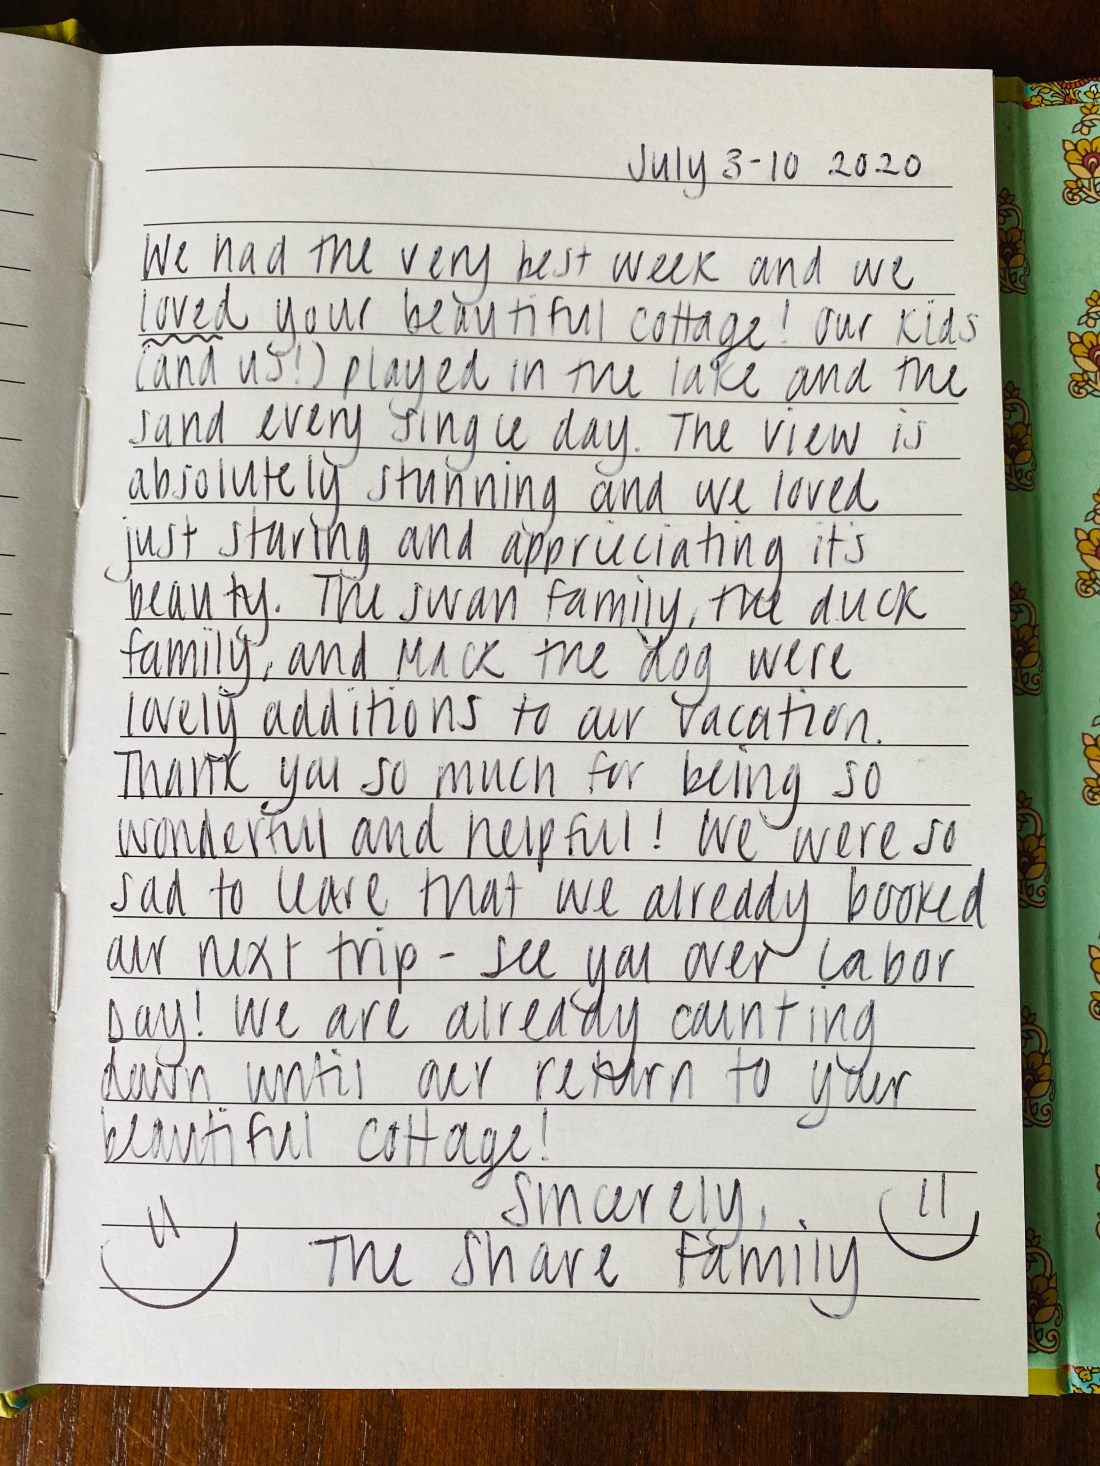 July 3-10 2020
We had the very best week and we
loved your beautiful cottage! Our kids
(and us!) played in the lake and the
sand every single day. The view is
absolutely stunning and we loved
just staring and appreciating it's
beauty. The swan family, the duck
family, and Mack the dog were
lovely additions to our vacation.
Thank you so much for being so
wonderful and helpful! We were so
sad to leave that we already booked
our next trip - see you over Labor
Day! We are already counting
down until our return to your
beautiful cottage!
Sincerely,
The Share Family